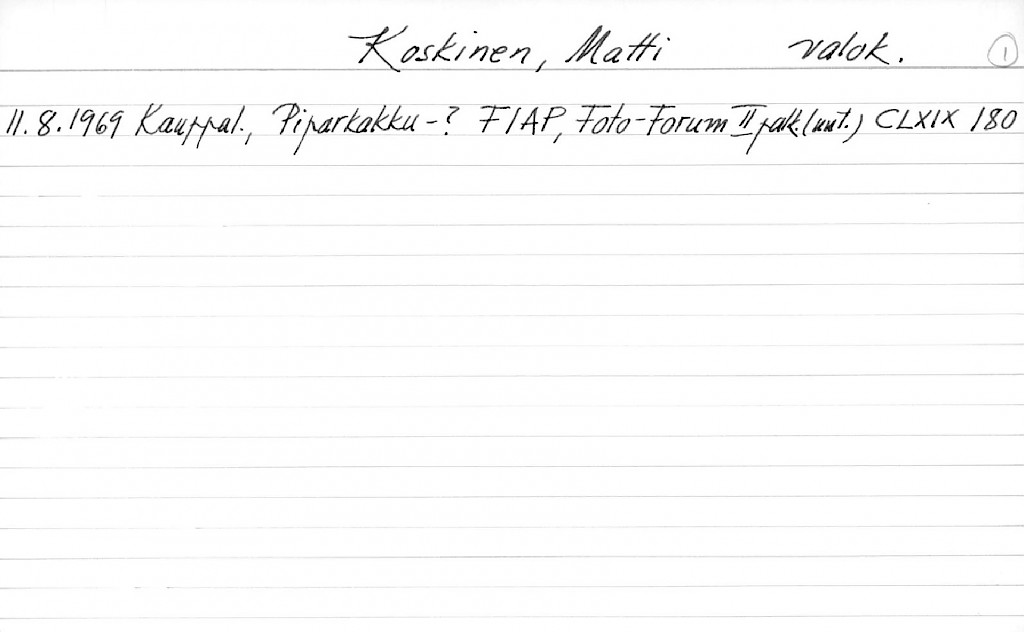 Koskinen, Matti valok. 1
11.8.1969 Kauppal., Piparkakku-? FIAP, Foto-Forum II palk. (uut.) CLXIX 180